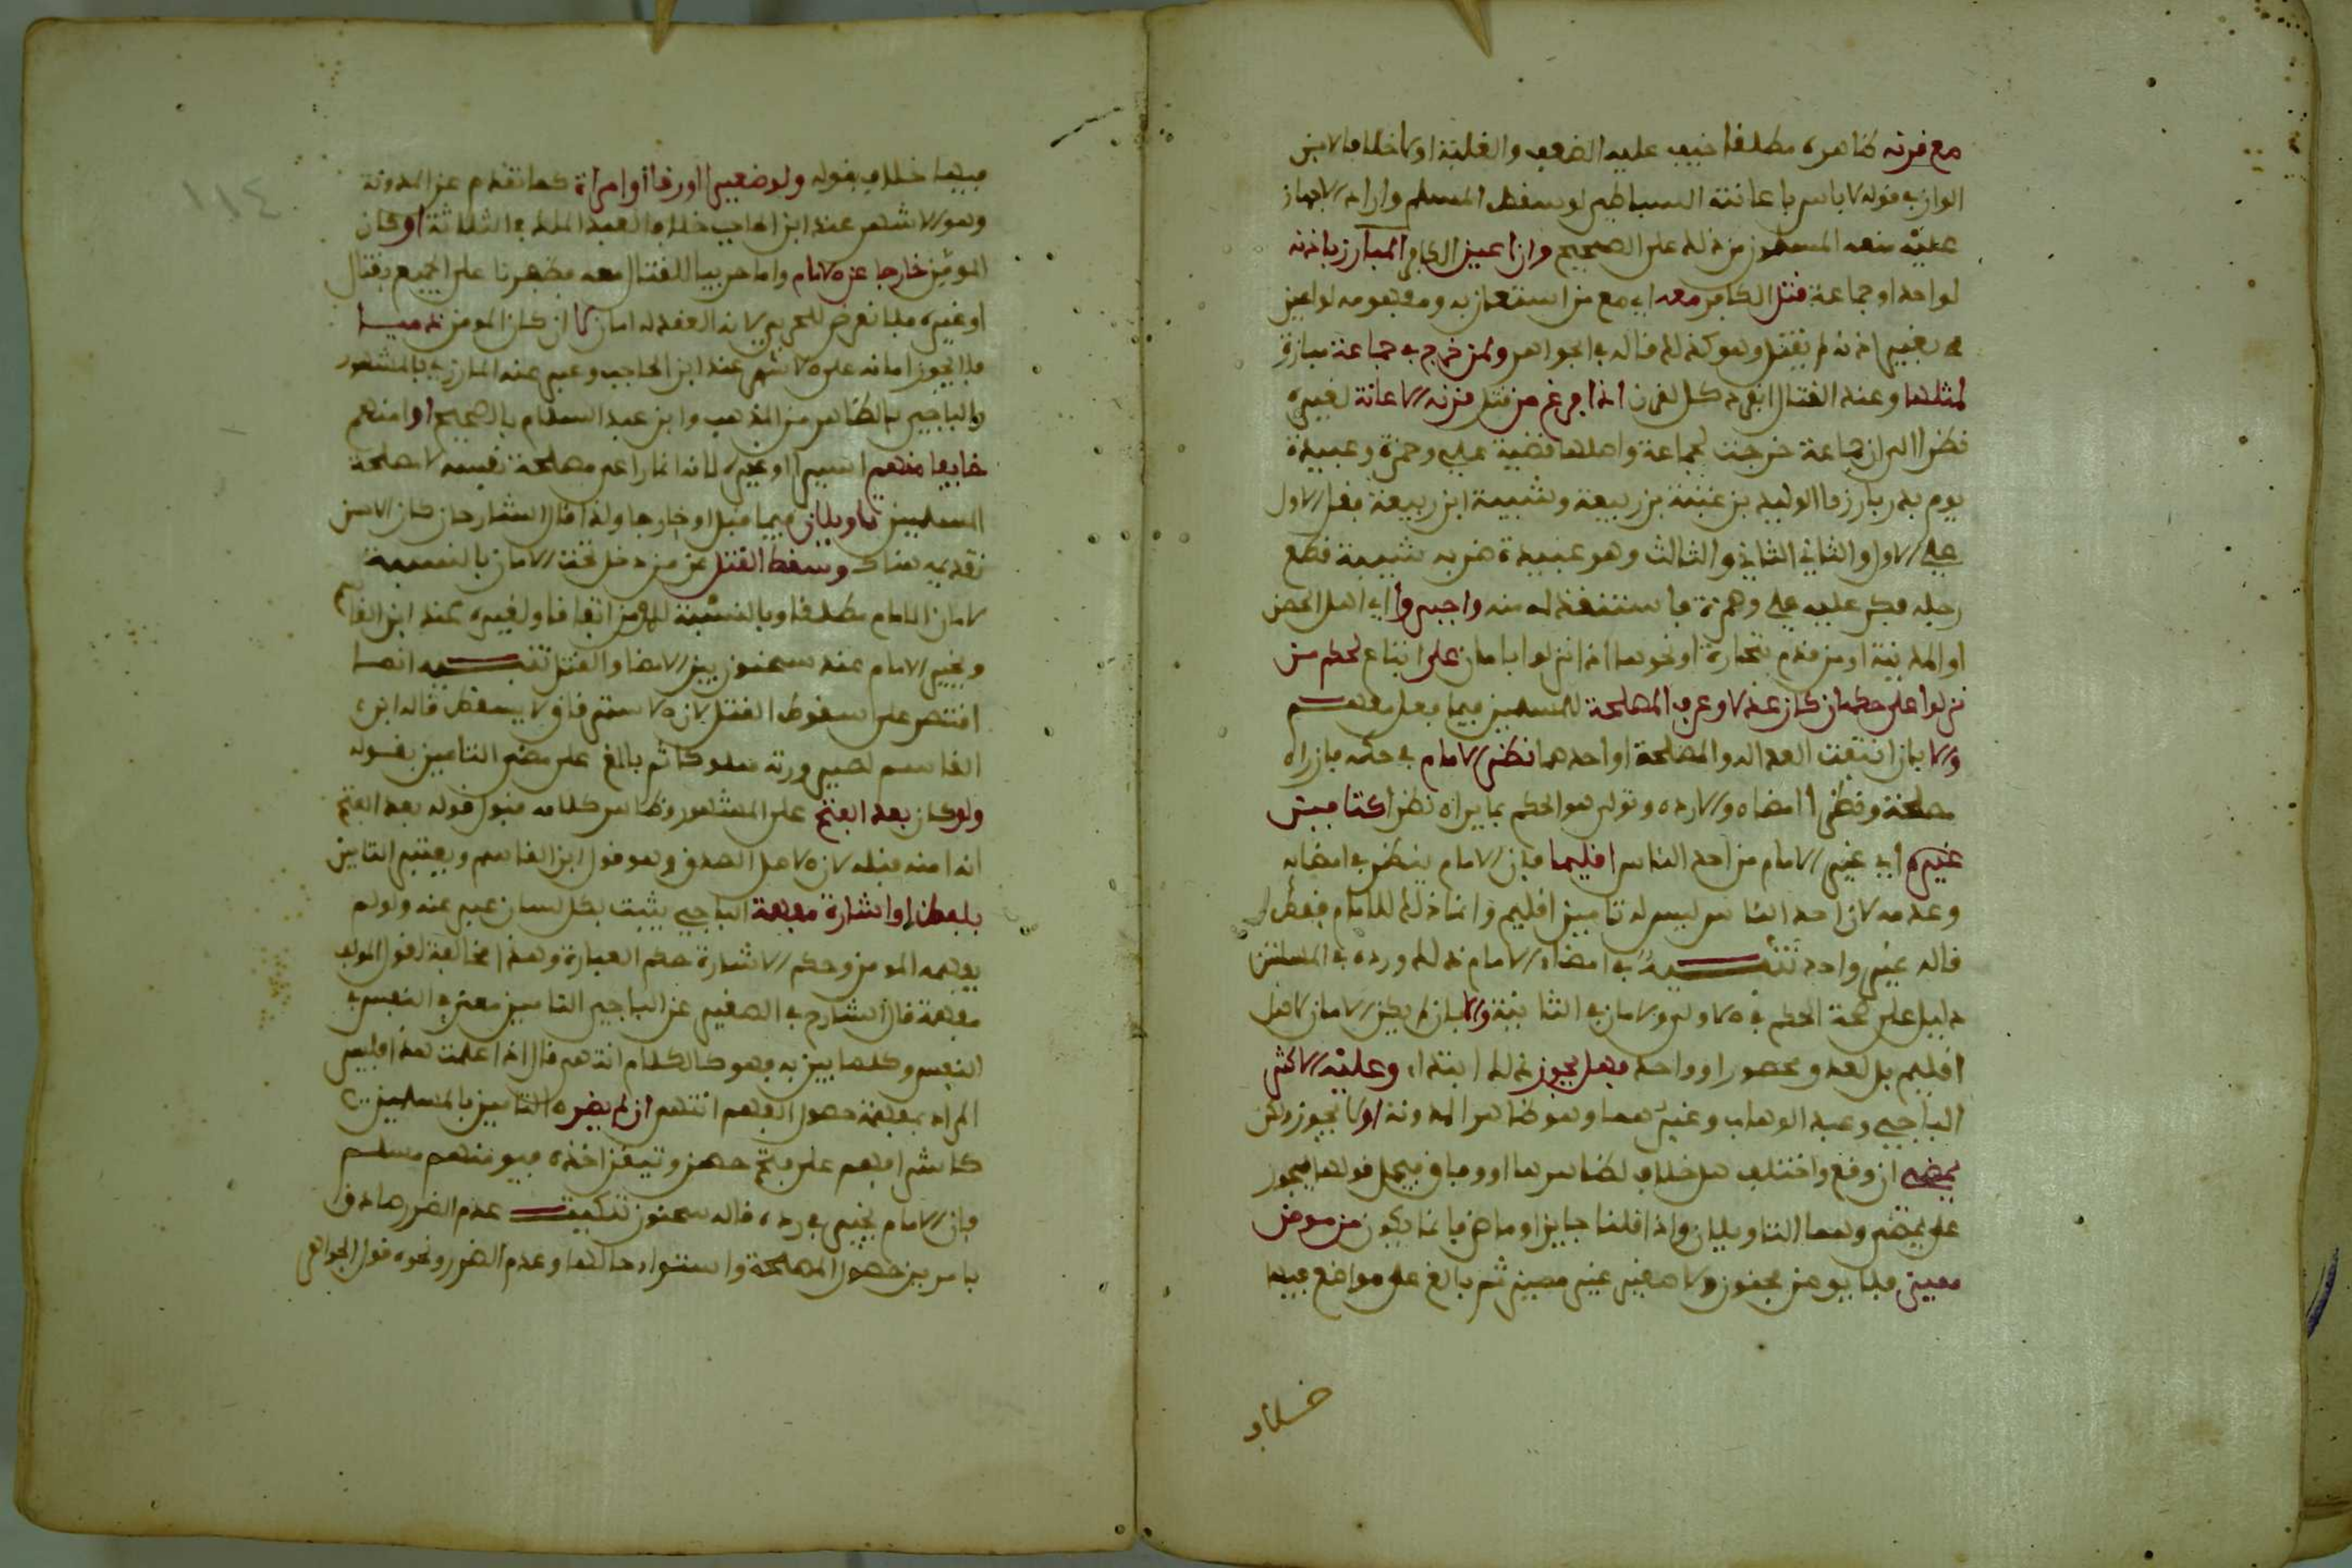 مع قرنه ظاهره مطلقا خيف عليه الضعف والغلبة أولا خلافا لابن
المواز في قوله لا باس باعانة لو سقط المسلم واراد الاجهاز
عليه منعه المسلمون من ذلك على الصحيح وان اعين الكافر المبارز باذنه
لواحد او جماعة قتل الكافر معه اي مع من استعان به ومفهومه لو اعين
بغير اذنه لم يقتل وهو كذلك قاله في الجواهر ولمن خرج في جماعة مبارزة
لمثلها وعند القتال انفرد كل لقرن اذا فرغ من قتل قرنه الاعانة لغيره
نظرا الى ان الجماعة خرجت لجماعة واصلها قضية علي وحمزة وعبيدة
يوم بدر بارزوا الوليد بن عتبة بن ربيعة وشيبة ابن ربيعة فقتل الاول
علي الاول والثاني الثاني والثالث وهو عبيدة ضربه شيبة فقطع
رجله فكر عليه علي وحمزة فاستنقذاه منه واجبروا اي اهل الحصن
او المدينة او من قدم بتجارة او نحوها اذا نزلوا بامان على اتباع حكم من
نزلوا على حكمه ان كان عدلا وعرف المصلحة للمسلمين فيما يفعل معهم
والا بان انتفت العدالة والمصلحة او احدهما نظر الامام في حكمه فان راه
مصلحة ونظرا امضاه والا رده وتولى هو الحكم بما يراه نظرا كتامين
غيره اي غير الامام من احد الناس اقليما فان الامام ينظر في امضايه
وعدمه لان احد الناس ليس له تامين اقليم وانما ذلك للامام فقط
قاله غير واحد تنبيه في امضاء الامام ذلك ورده في المسئلتين
دليل على صحة الحكم في الاولى والامان في الثانية والا بان لم يكن الامان لاهل
اقليم بل لعدد محصور او واحد فهل يجوز ذلك ابتداء وعليه الاكثر
الباجي وعبد الوهاب وغيرهما وهو ظاهر المدونة او لا يجوز ولكن
يمضي ان وقع واختلف هل خلاف لظاهرها او وفاق فيحمل قولها يجوز
على يمضي وهما التاويلان واذا قلنا جايز او ماض فانما يكون من مومن
مميز فلا يومن مجنون ولا صغير غير مميز ثم بالغ على مواضع فيها
خلاف
فيها خلاف بقوله ولو صغيرا او رقا او امراة كما تقدم عن المدونة
وهو الاشهر عند ابن الحاجب خلافا لعبد الملك في الثلاثة او كان
المومن خارجا عن الامام واما حربيا للقتال معه فظهرنا على الجميع بقتال
او غيره فلا نعرض للحربي لانه انعقد له امان لا ان كان المومن ذميا
فلا يجوز امانه على الاشهر عند ابن الحاجب وعبر عنه المازري بالمشهور
والباجي بالظاهر من المذهب وابن عبد السلام بالصحيح او امنهم
خايفا منهم اسيرا او غيره لانه انما راعى مصلحة نفسه لا مصلحة
المسلمين تاويلان فيما قبل او خارجا ولذا قال الشارح ان كان الاحسن
تقديمه هناك وسقط القتل عن من دخل تحت الامان بالنسبة
لامان الامام مطلقا وبالنسبة للمومن اتفاقا ولغيره عند ابن القاسم
ويخير الامام عند سحنون بين الامضا والقتل تنبيه انما
اقتصر على سقوط القتل لان الاسترقاق لا يسقط قاله ابن
القاسم لصيرورته مملوكا ثم بالغ على مضي التامين بقوله
ولو كان بعد الفتح على المشهور وظاهر كلامه قبول قوله بعد الفتح
انه امنه قبله لان الاصل الصدق وهو قول ابن القاسم ويعتبر التامين
بلفظ او اشارة مفهمة الباجي يثبت بكل لسان عبر عنه ولو لم
يفهمه المومن وحكم الاشارة حكم العبارة وهذا مخالف لقول المولف
مفهمة قال الشارح في الصغير عن الباجي التامين معنى في النفس
النفس وكلما يبين به فهو كالكلام انتهى قال اذا علمت هذا فليس
المراد بمفهمة حصول الفهم انتهى ان لم يضر التامين بالمسلمين
كاشرافهم على فتح حصن وتيقن اخذه فيومنهم مسلم
فان الامام يخير في رده قاله سحنون تنكيت عدم الضرر صادق
بامرين حصول المصلحة واستواء حالتها وعدم الضرر ونحوه قول الجواهر
١١٤